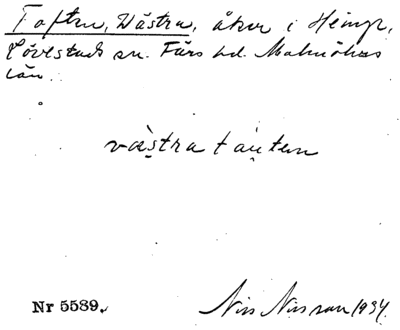 Toften, Västra, åker i Hemgr,
Lövestads sn. Färs hd. Malmöhus
län.
västra täuten
Nr 5589.
Nils Nilsson 1934.